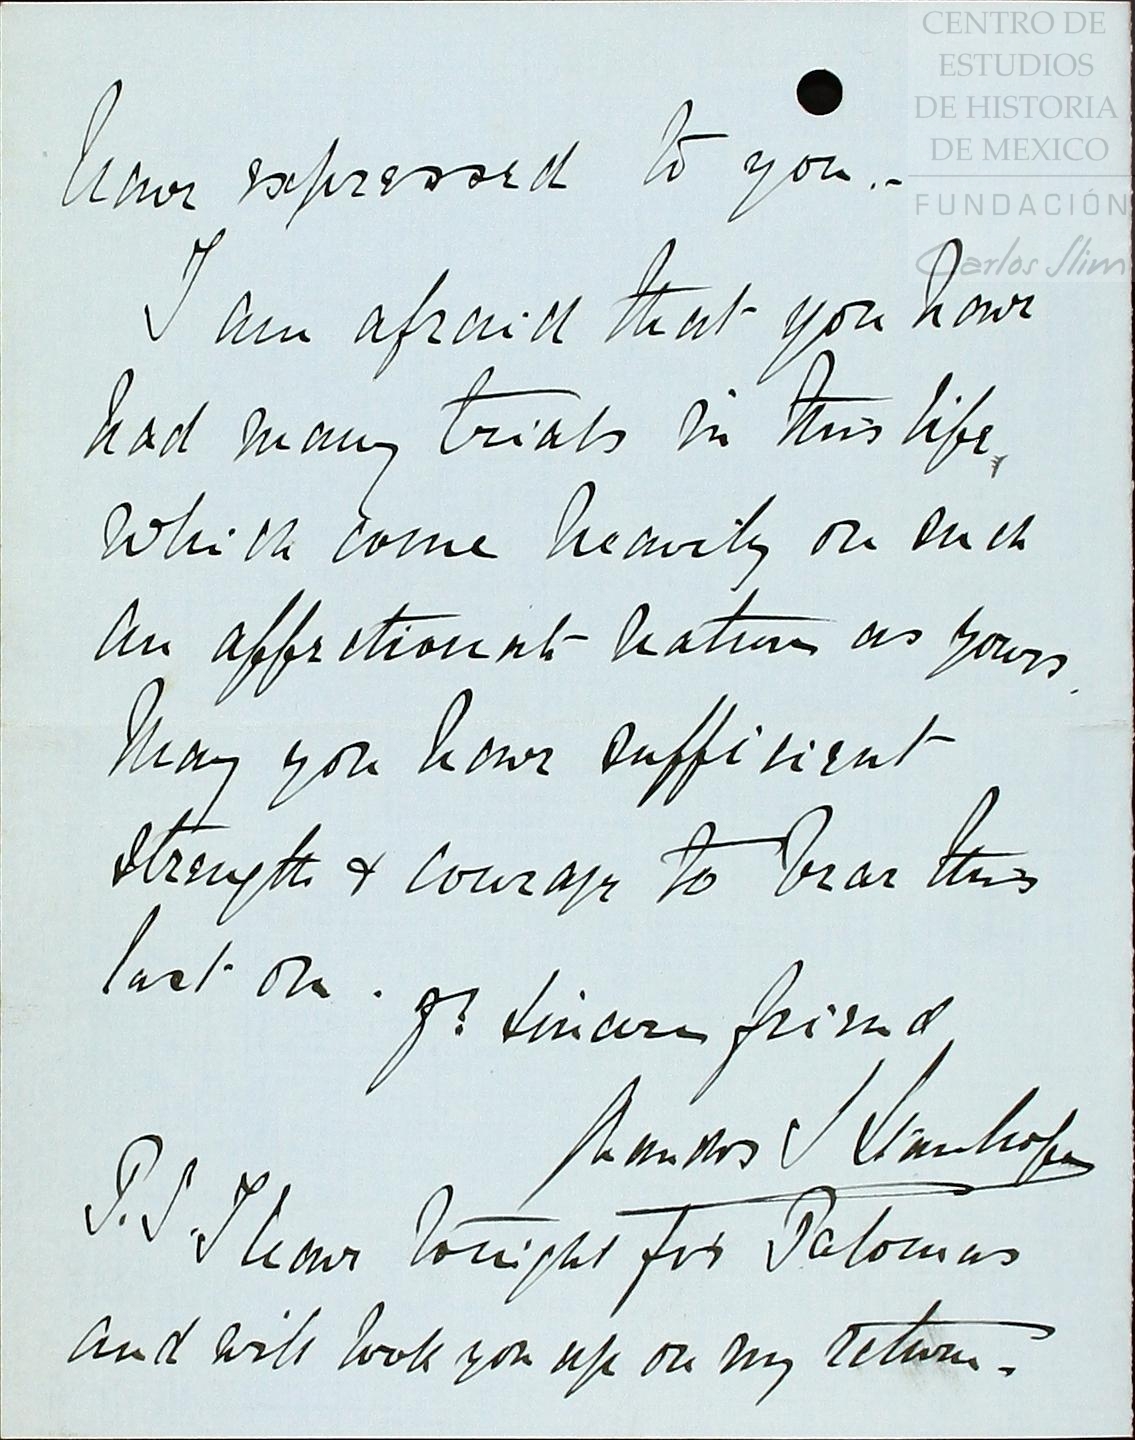 CENTRO DE
ESTUDIOS
DE HISTORIA
DE MEXICO
FUNDACIÓN
Carlos Slim
have expressed to you.-
I am afraid that you have
had many trials in this life,
which come heavily on such
an affectionate nature as yours.
May you have sufficient
strength & courage to bear this
last one.
Yr sincere friend
Chandos S Stanhope
P.S. I leave tonight for Palomas
and will look you up on my return.-